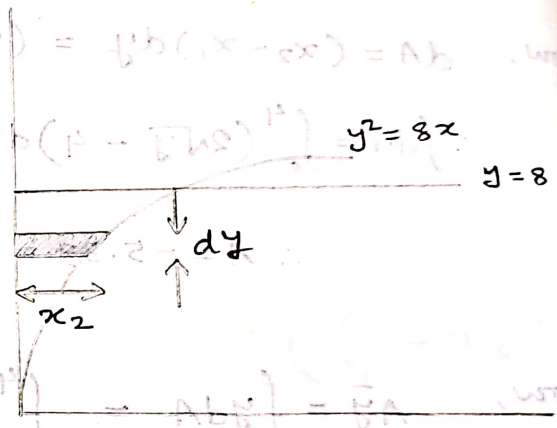 y² = 8x
y = 8
dy
x₂